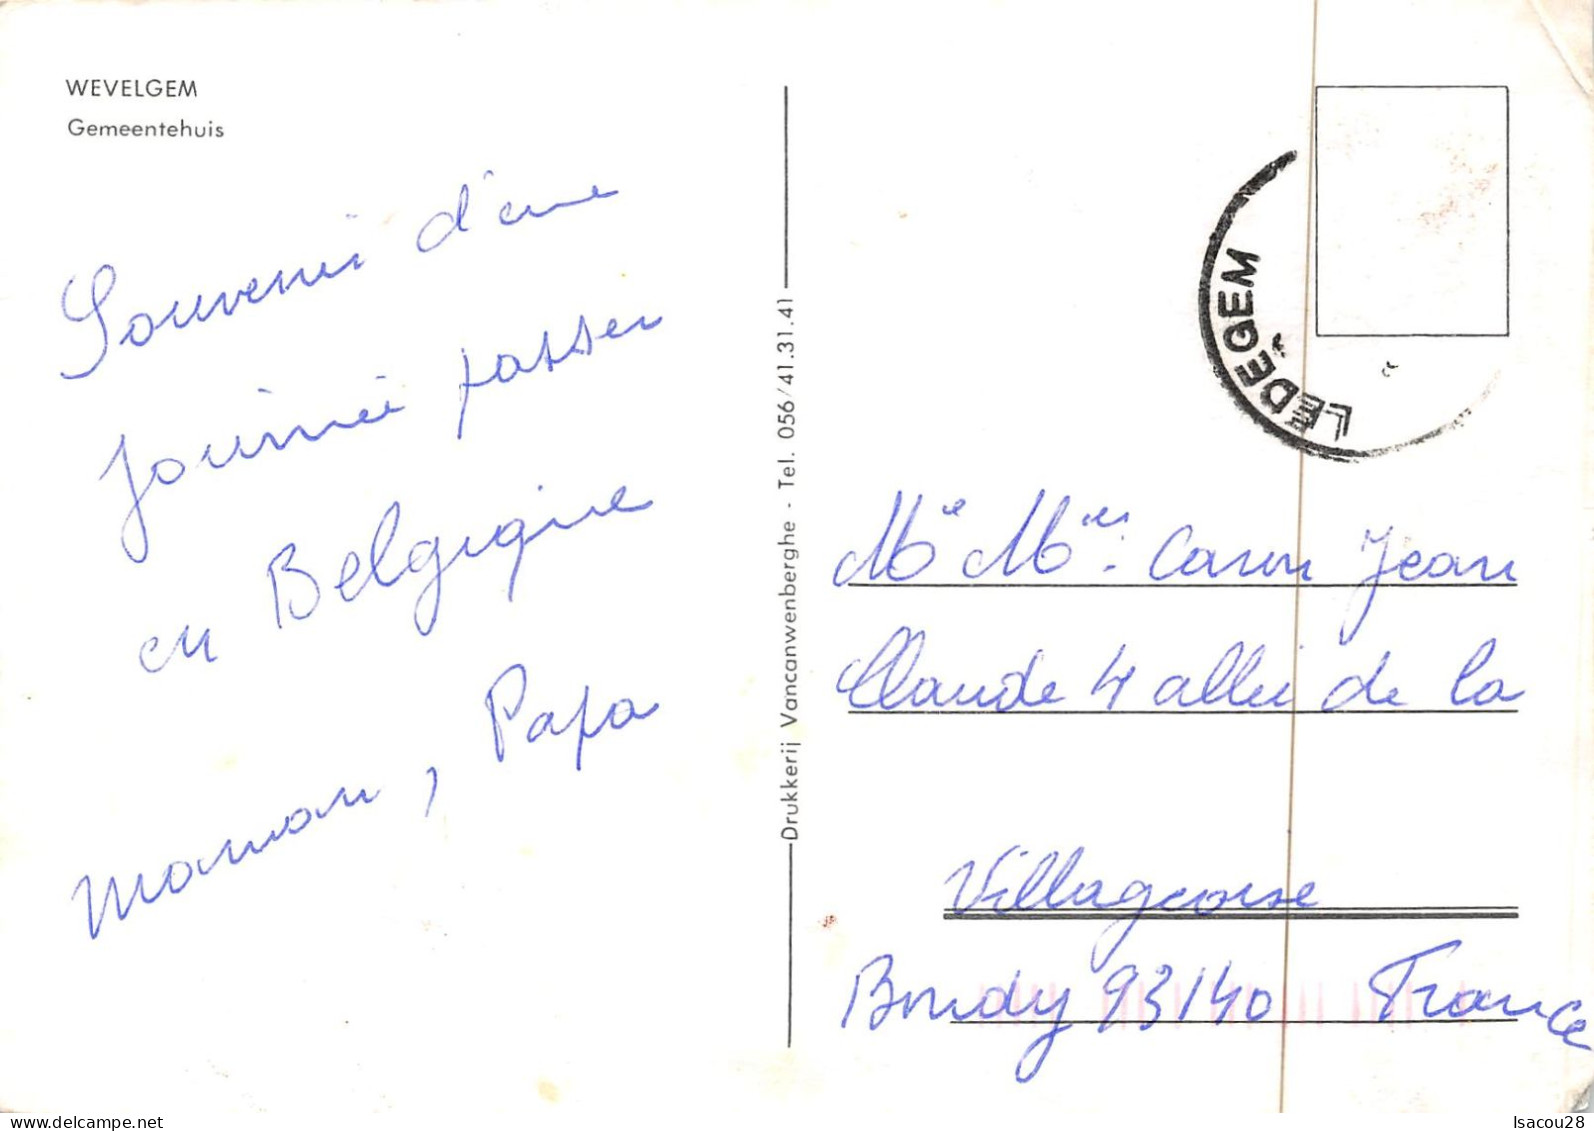 WEVELGEM
Gemeentehuis
Souvenir d'une
journée passer
en Belgique
maman, Papa
Drukkerij Vancanwenberghe - Tel. 056/41.31.41
LEDEGEM
Me Mme. Caron Jean
Claude 4 allée de la
Villageoise
Bondy 93140 France
Isacou28